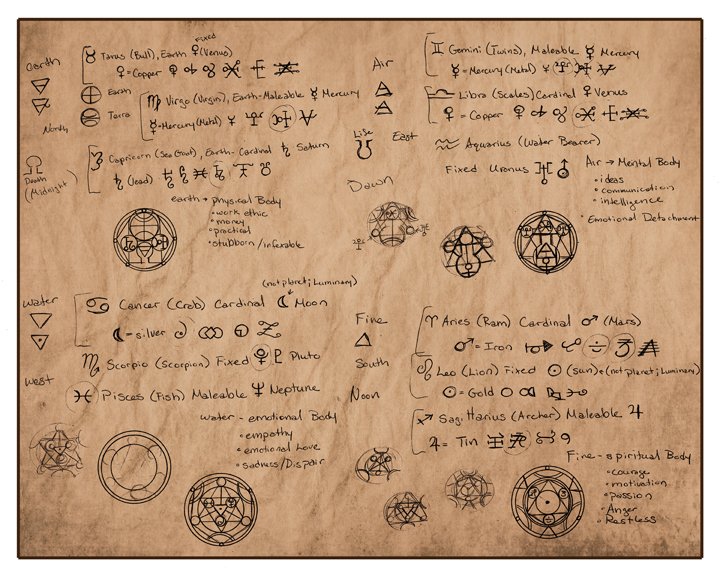 earth
Fixed
♉ Tarus (Bull), Earth ♀ (Venus)
♀ = Copper
Earth
Terra
North
♍ Virgo (Virgin), Earth-Maleable ☿ Mercury
☿ = Mercury (Metal)
Death
(Midnight)
Capricorn (Sea Goat), Earth-Cardinal ♄ Saturn
♄ (lead)
earth → physical Body
• work ethic
• money
• practical
• stubborn/inflexable
Air
♊ Gemini (Twins), Maleable ☿ Mercury
☿ = Mercury (Metal)
♎ Libra (Scales) Cardinal ♀ Venus
♀ = Copper
Life
East
♒ Aquarius (Water Bearer)
Fixed Uranus ♅
Air → Mental Body
• ideas
• communication
• intelligence
• Emotional Detachment
Dawn
(not planet; Luminary)
Water
♋ Cancer (Crab) Cardinal ☾ Moon
☾ = silver
♏ Scorpio (Scorpion) Fixed Pluto
West
♓ Pisces (Fish) Maleable ♆ Neptune
Water - emotional Body
• empathy
• emotional Love
• sadness/Dispair
Fire
South
Noon
♈ Aries (Ram) Cardinal ♂ (Mars)
♂ = Iron
♌ Leo (Lion) Fixed ☉ (sun) (not planet; Luminary)
☉ = Gold
♐ Sagittarius (Archer) Maleable ♃
♃ = Tin
Fire - spiritual Body
• courage
• motivation
• passion
• Anger
• Restless